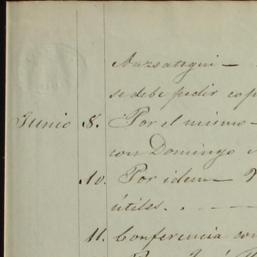 Auzsategui —
se debe pedir cop
Junio 8. Por el mismo —
con Domingo
10. Por idem —
útiles. . — — —
11. Conferencia con